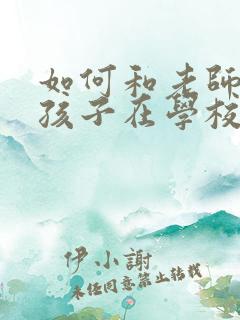 如何和老師
孩子在學校
伊小謝
未經同意禁止轉載